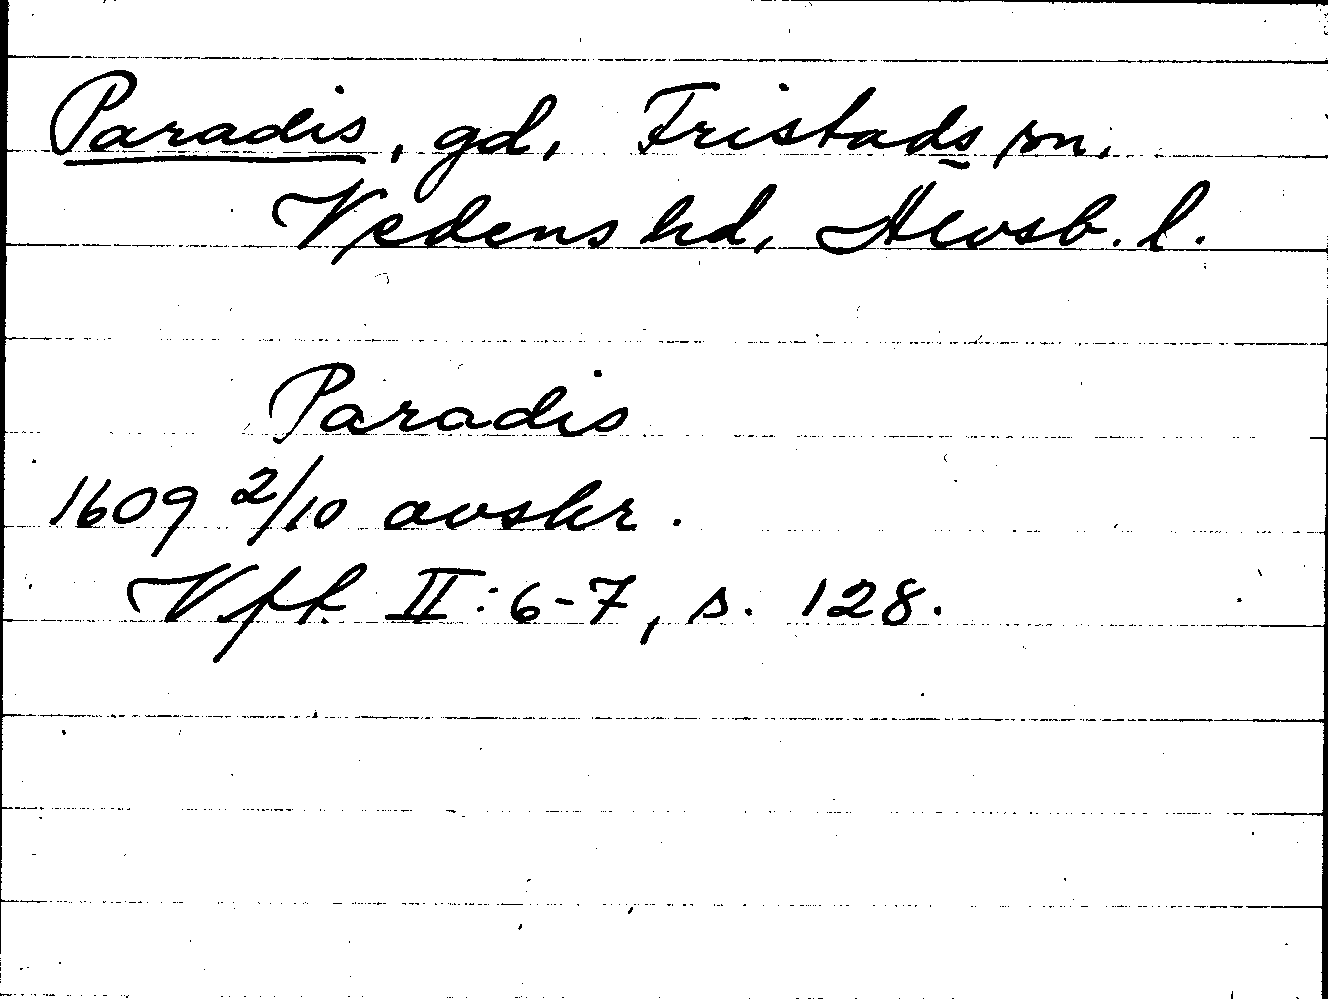 Paradis, gd, Fristads sn.
Vedens hd, Älvsb. l.
Paradis
1609 2/10 avskr.
Vff II: 6-7, s. 128.